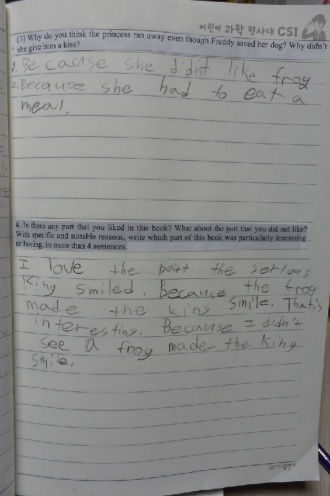 어린이 과학 형사대 CSI 2
(3) Why do you think the princess ran away even though Freddy saved her dog? Why didn't
she give him a kiss?
1. Be cause she didn't like frog
2. Because she had to eat a
meal.
4. Is there any part that you liked in this book? What about the part that you did not like?
With specific and suitable reasons, write which part of this book was particularly interesting
or boring, in more than 4 sentences.
I love the part the serious
King smiled. Because the frog
made the king smile. That's
interesting. Because I didn't
see a frog made the King
smile.